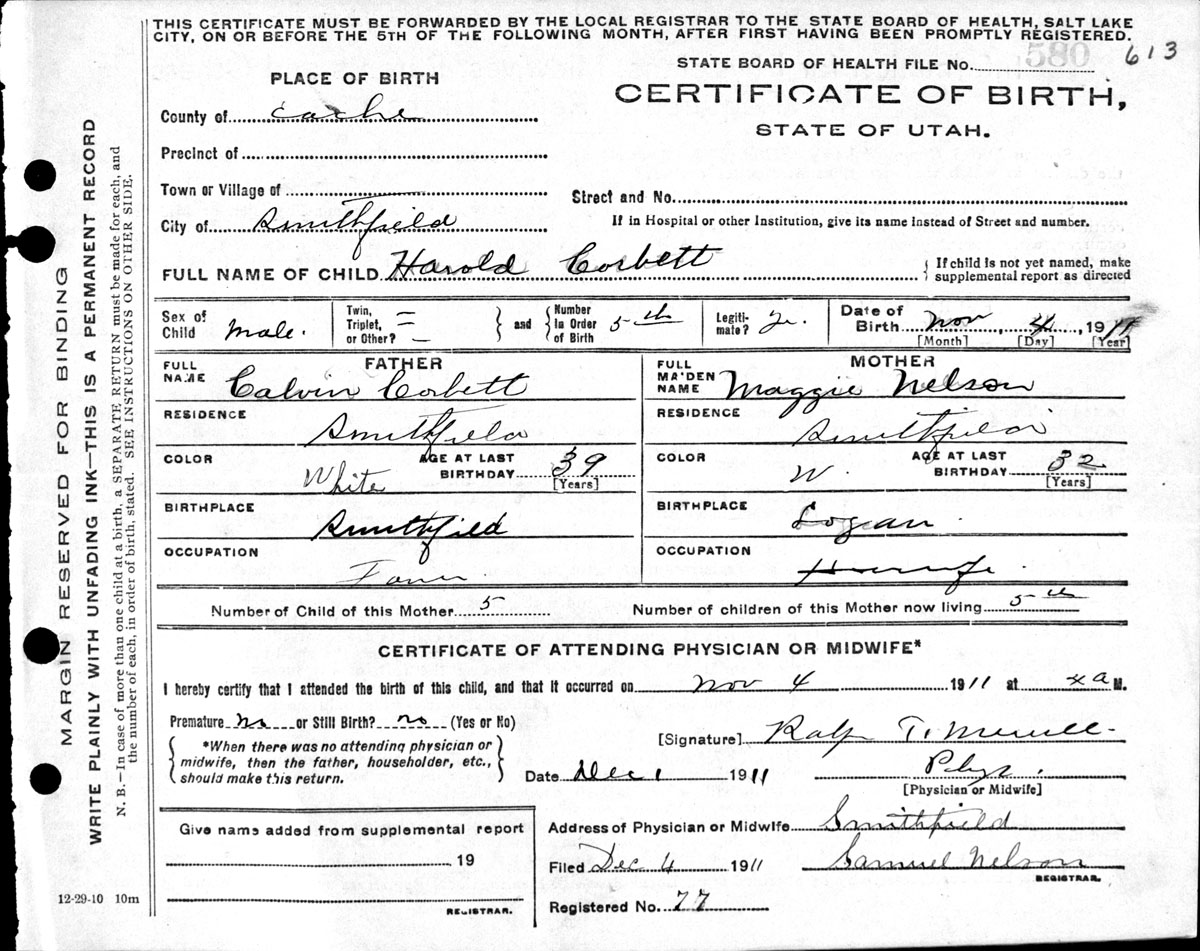 THIS CERTIFICATE MUST BE FORWARDED BY THE LOCAL REGISTRAR TO THE STATE BOARD OF HEALTH, SALT LAKE
CITY, ON OR BEFORE THE 5TH OF THE FOLLOWING MONTH, AFTER FIRST HAVING BEEN PROMPTLY REGISTERED.
STATE BOARD OF HEALTH FILE No. 580 613
PLACE OF BIRTH
CERTIFICATE OF BIRTH,
STATE OF UTAH.
County of Cache
Precinct of
Town or Village of
Street and No.
City of Smithfield
If in Hospital or other Institution, give its name instead of Street and number.
FULL NAME OF CHILD Harold Corbett
If child is not yet named, make
supplemental report as directed
Sex of Child Male.
Twin, Triplet, or Other? =
and Number in Order of Birth 5th
Legiti- mate?
Date of Birth Nov 4, 1911
[Month] [Day] [Year]
FATHER
FULL NAME Calvin Corbett
RESIDENCE
Smithfield
COLOR White
AGE AT LAST BIRTHDAY 39
[Years]
BIRTHPLACE
Smithfield
OCCUPATION
MOTHER
FULL MAIDEN NAME Maggie Nelson
RESIDENCE
Smithfield
COLOR W.
AGE AT LAST BIRTHDAY 32
[Years]
BIRTHPLACE
Logan
OCCUPATION
Housewife.
Number of Child of this Mother 5
Number of children of this Mother now living 5th
CERTIFICATE OF ATTENDING PHYSICIAN OR MIDWIFE*
I hereby certify that I attended the birth of this child, and that it occurred on Nov 4 1911 at 4 a M.
Premature No or Still Birth? no (Yes or No)
*When there was no attending physician or
midwife, then the father, householder, etc.,
should make this return.
[Signature] Ralph T. Merrill
Date Dec 1 1911
Phys.
[Physician or Midwife]
Give name added from supplemental report
19
REGISTRAR.
Address of Physician or Midwife Smithfield
Filed Dec 4 1911 Samuel Nelson
REGISTRAR.
Registered No. 77
12-29-10 10m
MARGIN RESERVED FOR BINDING
WRITE PLAINLY WITH UNFADING INK—THIS IS A PERMANENT RECORD
N. B.—In case of more than one child at a birth, a SEPARATE RETURN must be made for each, and
the number of each, in order of birth, stated. SEE INSTRUCTIONS ON OTHER SIDE.